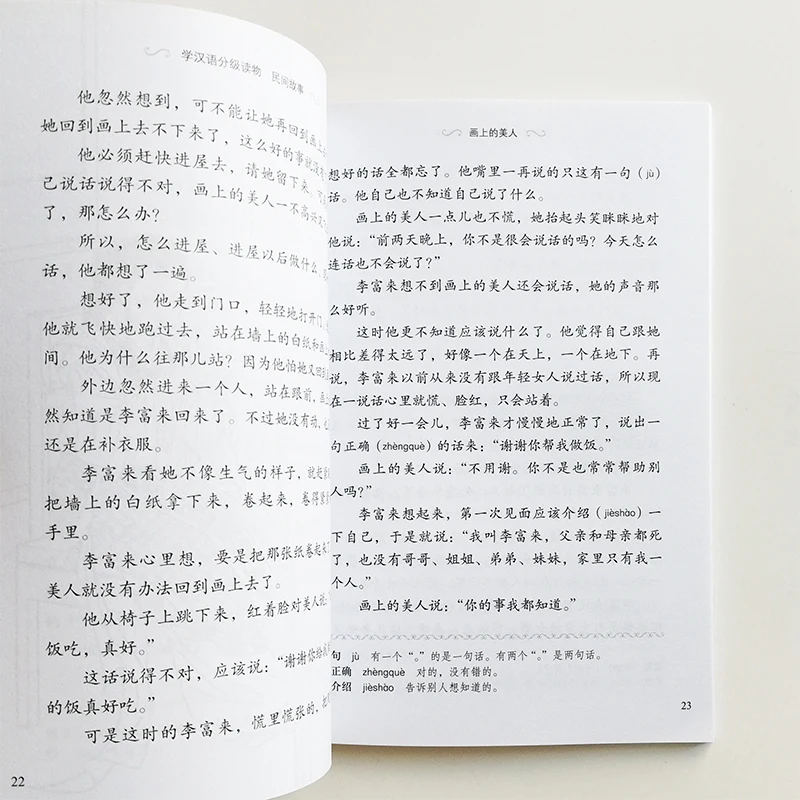 学汉语分级读物 民间故事
他忽然想到，可不能让她再回到画上
她回到画上去不下来了，这么好的事就没
他必须赶快进屋去，请她留下来。可
己说话说得不对，画上的美人一不高兴又
了，那怎么办？
所以，怎么进屋、进屋以后做什么、
话，他都想了一遍。
想好了，他走到门口，轻轻地打开门，
他就飞快地跑过去，站在墙上的白纸和
间。他为什么往那儿站？因为他怕她又回到
外边忽然进来一个人，站在跟前，画上
然知道是李富来回来了。不过她没有动，
还是在补衣服。
李富来看她不像生气的样子，就赶
把墙上的白纸拿下来，卷起来，卷得紧
手里。
李富来心里想，要是把那张纸卷起来
美人就没有办法回到画上去了。
他从椅子上跳下来，红着脸对美人说：
饭吃，真好。”
这话说得不对，应该说：“谢谢你给
的饭真好吃。”
可是这时的李富来，慌里慌张的，把
22
画上的美人
想好的话全都忘了。他嘴里一再说的只这有一句（jù）
话。他自己也不知道自己说了什么。
画上的美人一点儿也不慌，她抬起头笑眯眯地对
他说：“前两天晚上，你不是很会说话的吗？今天怎么
连话也不会说了？”
李富来想不到画上的美人还会说话，她的声音那
么好听。
这时他更不知道应该说什么了。他觉得自己跟她
相比差得太远了，好像一个在天上，一个在地下。再
说，李富来以前从来没有跟年轻女人说过话，所以现
在一说话心里就慌、脸红，只会站着。
过了好一会儿，李富来才慢慢地正常了，说出一
句正确（zhèngquè）的话来：“谢谢你帮我做饭。”
画上的美人说：“不用谢。你不是也常常帮助别
人吗？”
李富来想起来，第一次见面应该介绍（jièshào）一
下自己，于是就说：“我叫李富来，父亲和母亲都死
了，也没有哥哥、姐姐、弟弟、妹妹，家里只有我一
个人。”
画上的美人说：“你的事我都知道。”
句 jù 有一个“。”的是一句话。有两个“。”是两句话。
正确 zhèngquè 对的，没有错的。
介绍 jièshào 告诉别人想知道的。
23